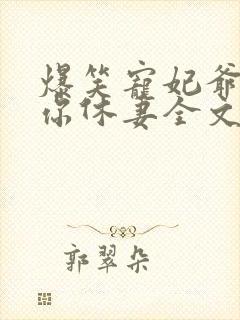 爆笑宠妃爷
你休妻全文
郭翠朵